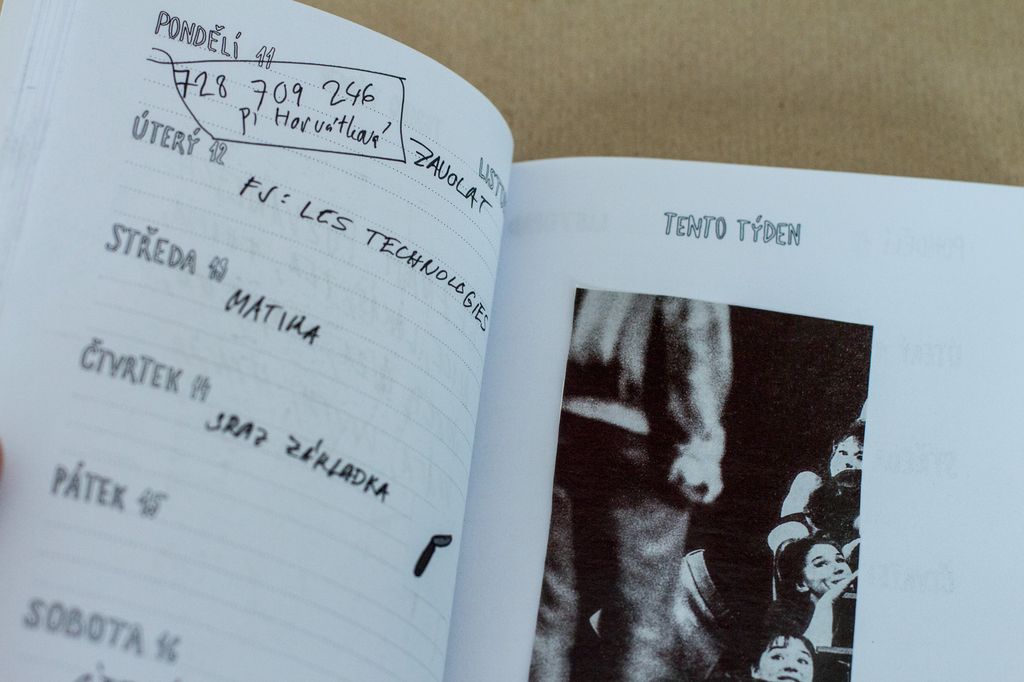 PONDĚLÍ 11
728 709 246
pí Horvátková
ZAVOLAT
ÚTERÝ 12
FJ: LES TECHNOLOGIES
STŘEDA 13
MATIKA
ČTVRTEK 14
SRAZ ZÁKLADKA
PÁTEK 15
SOBOTA 16
TENTO TÝDEN